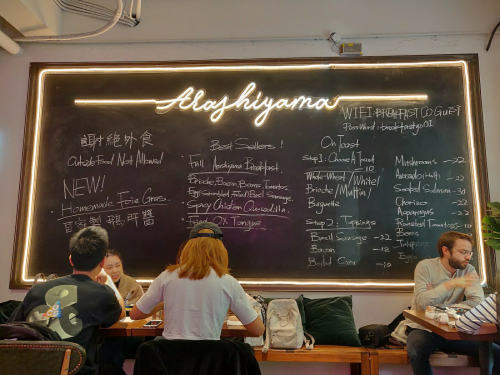 Arashiyama
WIFI: BREAKFAST CO Guest
Password: breakfastgo01
謝絕外食
Outside Food Not Allowed
NEW!
Homemade Foie Gras.
自家製鵝肝醬
Best Sellers!
Full Arashiyama Breakfast.
Brioche, Bacon, Beans, Tomatoes.
Egg Scrambled/Fried/Boil, Sausage.
Spicy Chicken Quesadilla.
Fried OX Tongue
On Toast
Step 1: Choose A Toast
-10
Whole-Wheat/White/
Brioche/Muffin/
Baguette
Step 2: Toppings
Basil Sausage -22
Bacon -18
Boiled -10
Mushrooms -22
Avocado (Half) -22
Smoked Salmon
Chorizo -22
Asparagus -22
Roasted Tomatoes
Beans
Jalapeno
Eggs